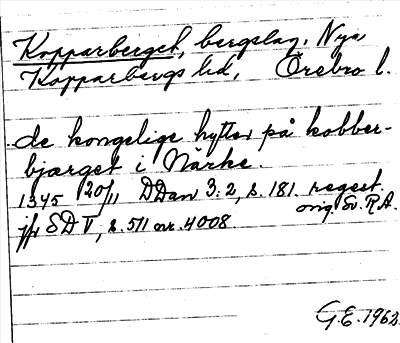 Kopparberget, bergslag, Nya
Kopparbergs sd, Örebro l.
de kongelige hytter på kobber-
bjærget i Närke.
1345 20/11 DDan 3:2, s. 181. regest.
orig. Sv. R.A.
jfr SD V, s. 511 nr. 4008
G.E. 1962.